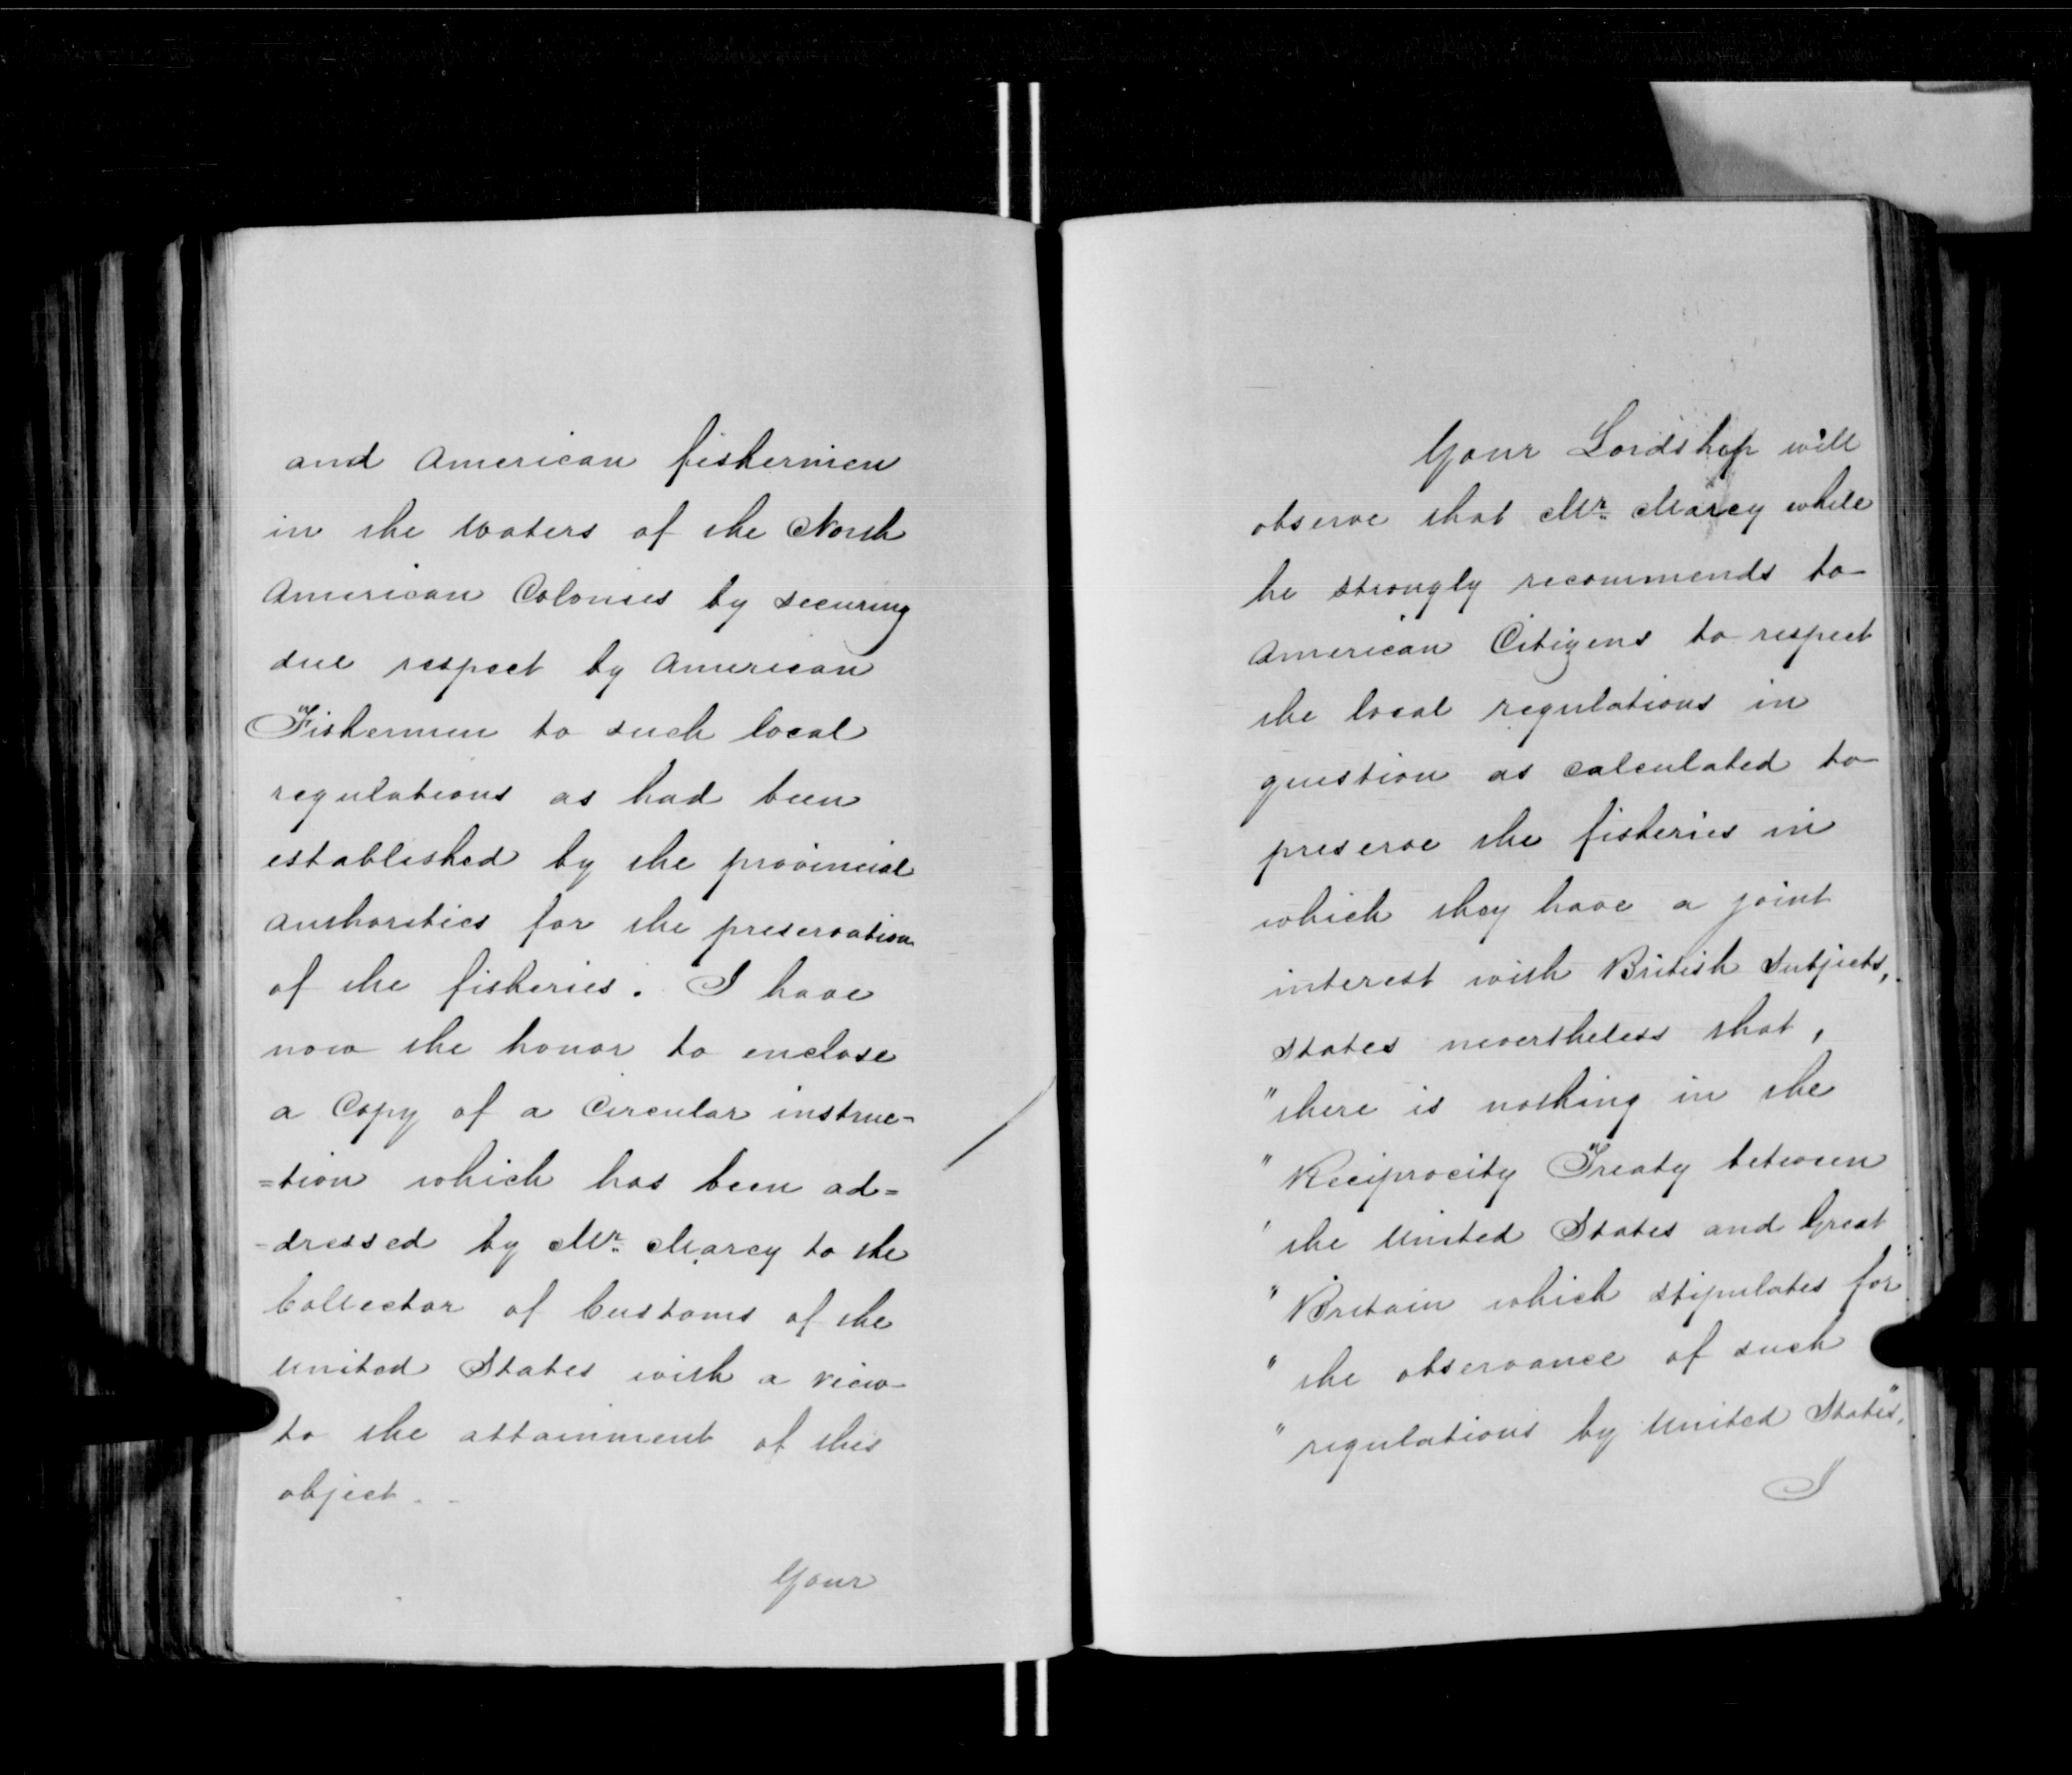 and American fishermen
in the waters of the North
American Colonies by securing
due respect by American
Fishermen to such local
regulations as had been
established by the provincial
authorities for the preservation
of the fisheries. I have
now the honor to enclose
a Copy of a Circular instruc=
=tion which has been ad=
-dressed by Mr. Marcy to the
Collector of Customs of the
United States with a view
to the attainment of this
object.
Your
Your Lordship will
observe that Mr. Marcy while
he strongly recommends to
American Citizens to respect
the local regulations in
question as calculated to
preserve the fisheries in
which they have a joint
interest with British Subjects,
states nevertheless that,
"there is nothing in the
"Reciprocity Treaty between
"the United States and Great
"Britain which stipulates for
"the observance of such
"regulations by United States".
I